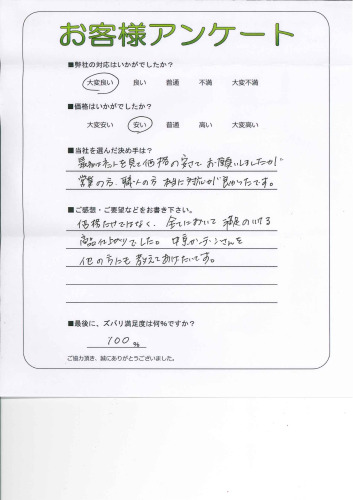 お客様アンケート
■弊社の対応はいかがでしたか?
大変良い 良い 普通 不満 大変不満
■価格はいかがでしたか?
大変安い 安い 普通 高い 大変高い
■当社を選んだ決め手は?
最初はネットを見て価格の安さで お願いしましたが
営業の方、職人の方 本当に対応が良かったです。
■ご感想・ご要望などをお書き下さい。
価格だけではなく、全てにおいて 満足のいける
商品仕上がりでした。
他の方にも 教えてあげたいです。
■最後に、ズバリ満足度は何%ですか?
100%
ご協力頂き、誠にありがとうございました。